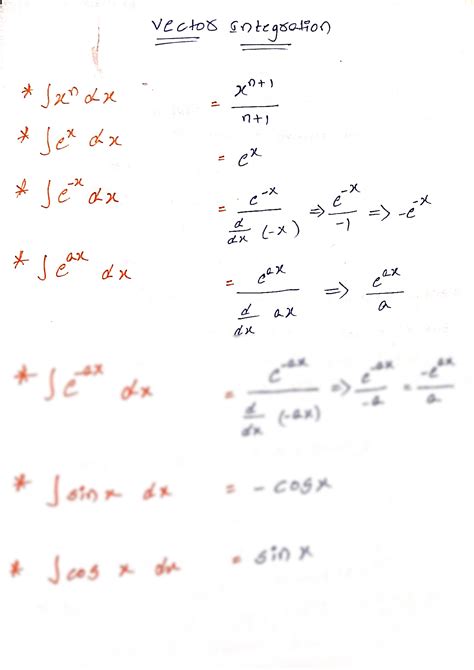 Vector Integration
* ∫xⁿ dx = xⁿ⁺¹ / n+1
* ∫eˣ dx = eˣ
* ∫e⁻ˣ dx = e⁻ˣ / d/dx (-x) ⇒ e⁻ˣ / -1 ⇒ -e⁻ˣ
* ∫eᵃˣ dx = eᵃˣ / d/dx ax ⇒ eᵃˣ / a
* ∫e⁻ᵃˣ dx = e⁻ᵃˣ / d/dx (-ax) ⇒ e⁻ᵃˣ / -a = -e⁻ᵃˣ / a
* ∫sin x dx = - cos x
* ∫cos x dx = sin x